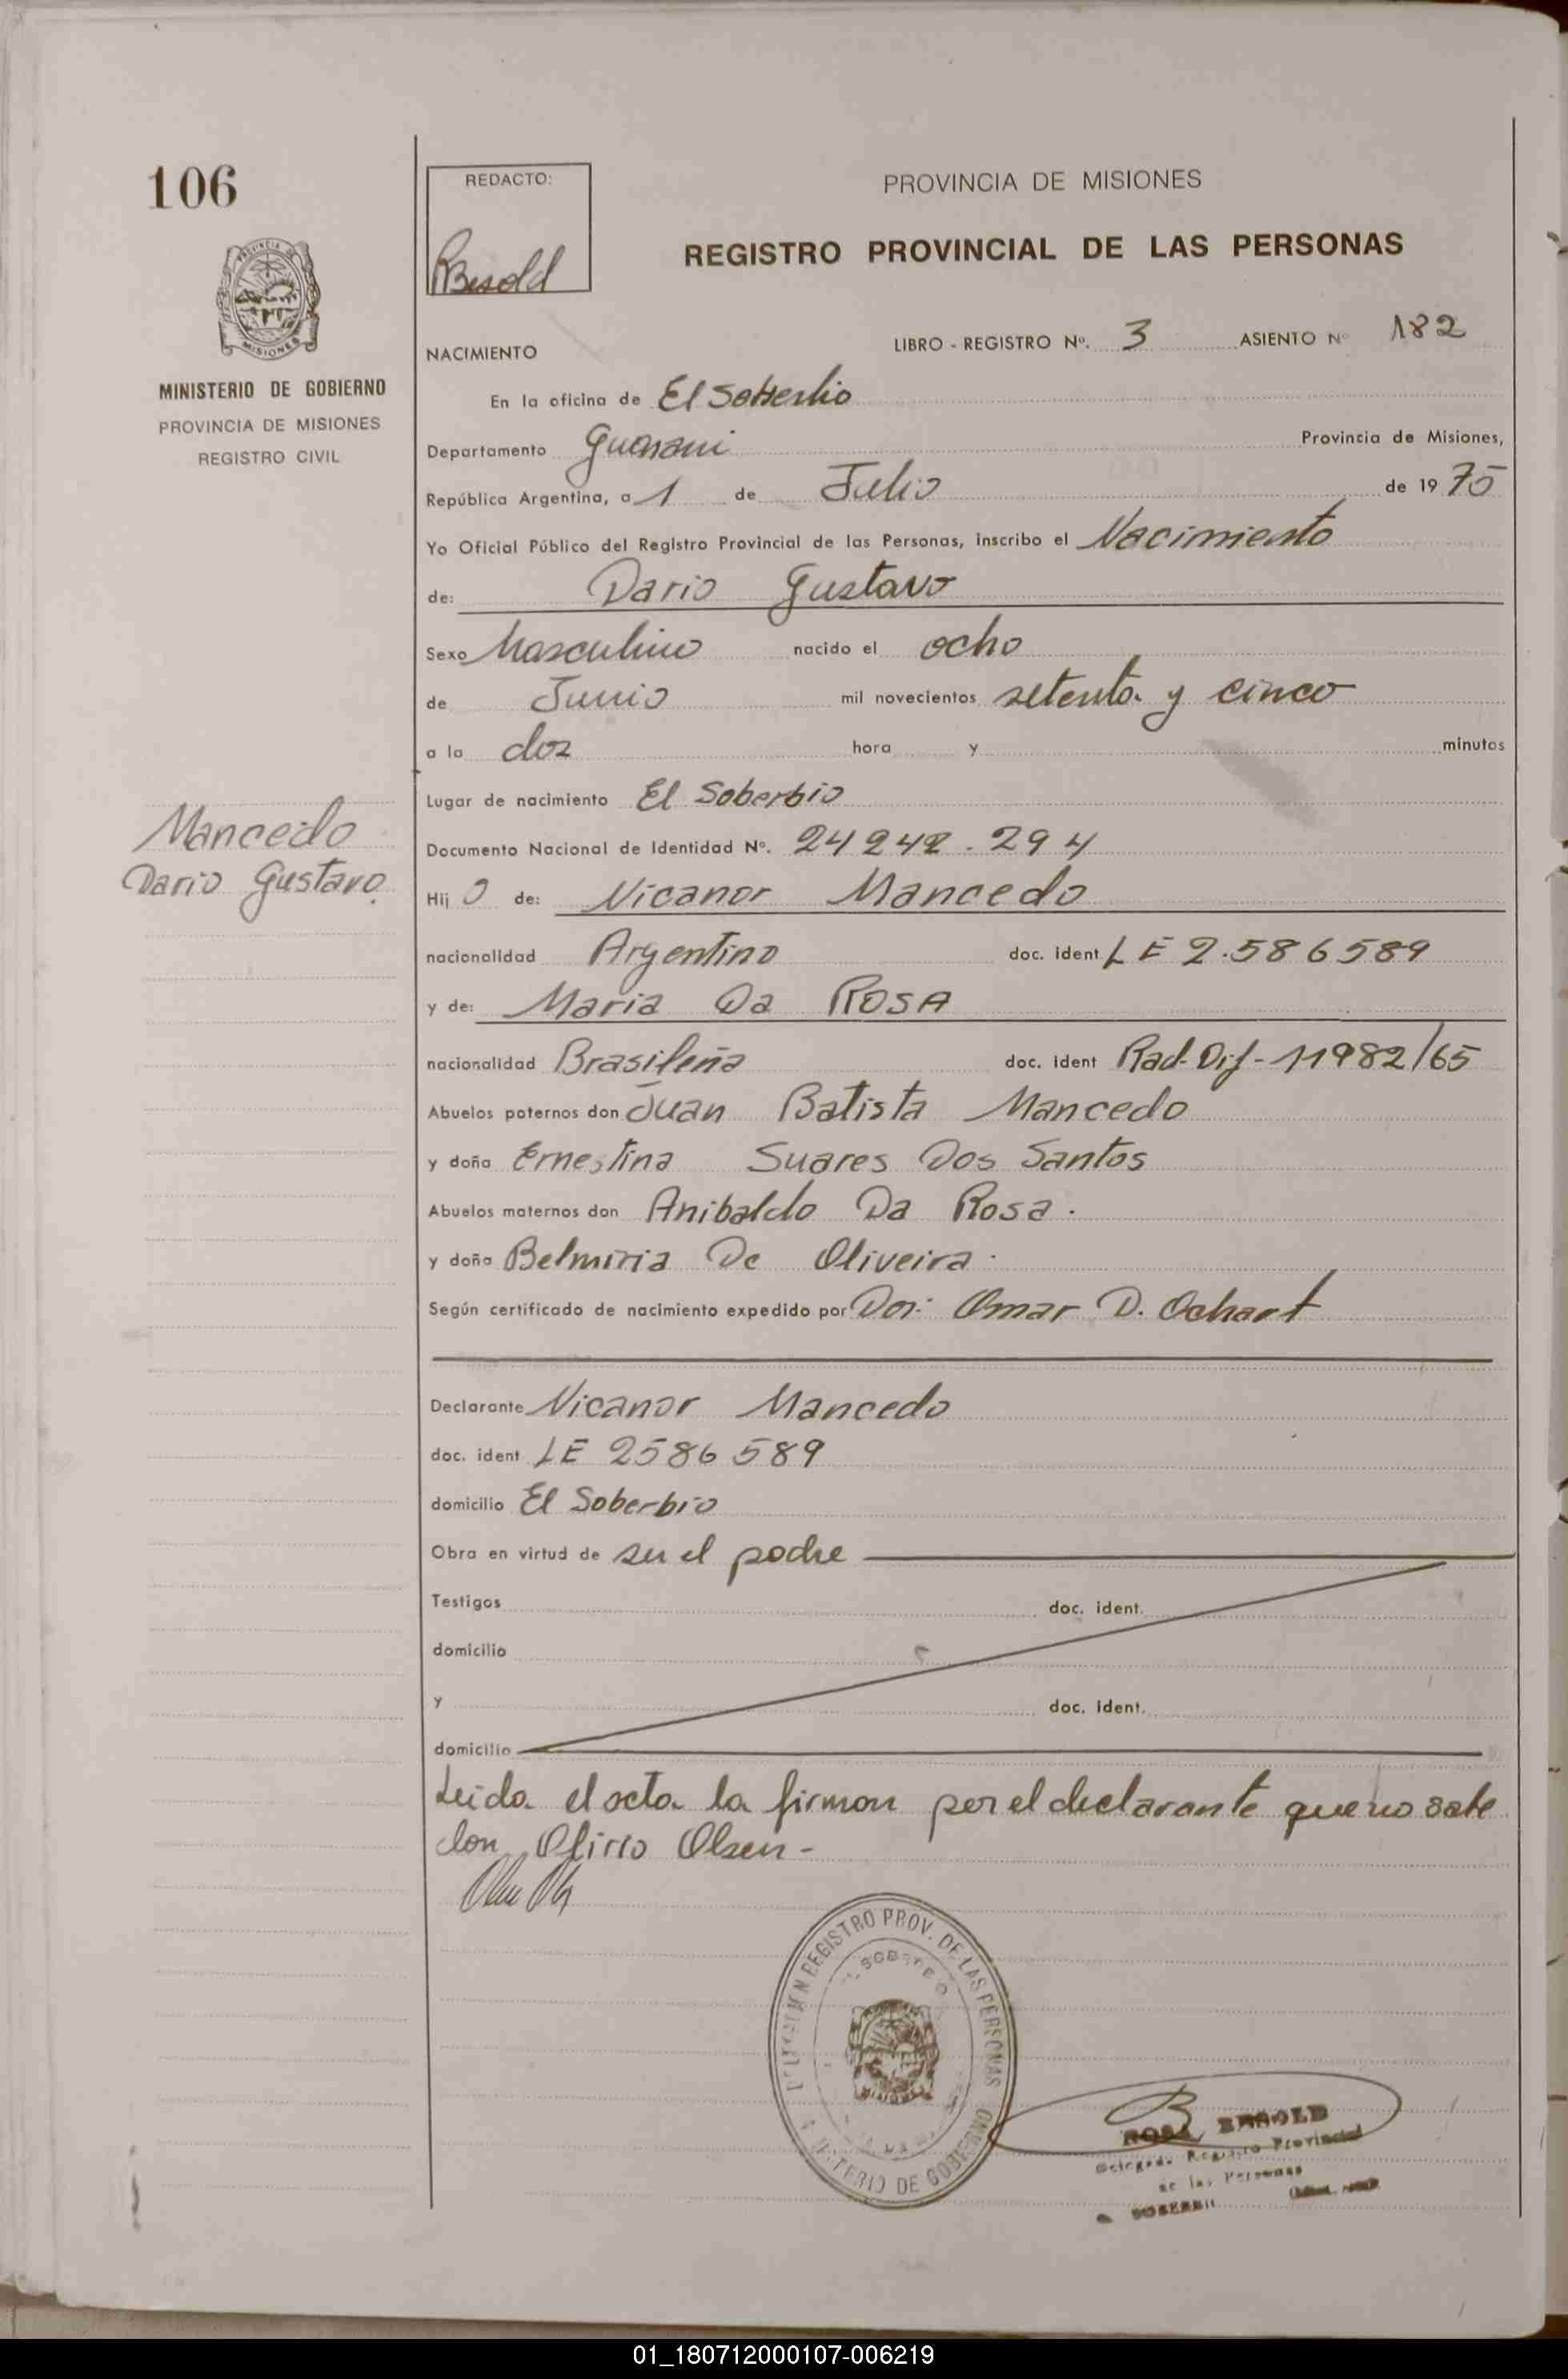 106
REDACTO:
RBesold
PROVINCIA DE MISIONES
REGISTRO PROVINCIAL DE LAS PERSONAS
MISIONES
MINISTERIO DE GOBIERNO
PROVINCIA DE MISIONES
REGISTRO CIVIL
NACIMIENTO
LIBRO - REGISTRO Nº. 3 ASIENTO Nº 182
En la oficina de El Soberbio
Departamento Guarani Provincia de Misiones,
República Argentina, a 1 de Julio de 1975
Yo Oficial Público del Registro Provincial de las Personas, inscribo el Nacimiento
de: Dario Gustavo
Sexo Masculino nacido el ocho
de Junio mil novecientos setenta y cinco
a la dos hora y minutos
Lugar de nacimiento El Soberbio
Mancedo
Dario Gustavo.
Documento Nacional de Identidad Nº. 24 242.294
Hij o de: Nicanor Mancedo
nacionalidad Argentino doc. ident. LE 2.586589
y de: Maria Da ROSA
nacionalidad Brasileña doc. ident Rad-Dif-11982/65
Abuelos paternos don Juan Batista Mancedo
y doña Ernestina Suares Dos Santos
Abuelos maternos don Anibaldo Da Rosa.
y doña Belmiria De Oliveira.
Según certificado de nacimiento expedido por Dor: Omar D. Ochart
Declarante Nicanor Mancedo
doc. ident LE 2586589
domicilio El Soberbio
Obra en virtud de ser el padre
Testigos doc. ident.
domicilio
y doc. ident.
domicilio
Leida el acta la firman por el declarante que no sabe
don Ofirio Olsen -
REGISTRO PROV. DE LAS PERSONAS
MINISTERIO DE GOBIERNO
ROSA BESOLD
Delegada Registro Provincial
de las Personas
SOBERBIO
01_180712000107-006219